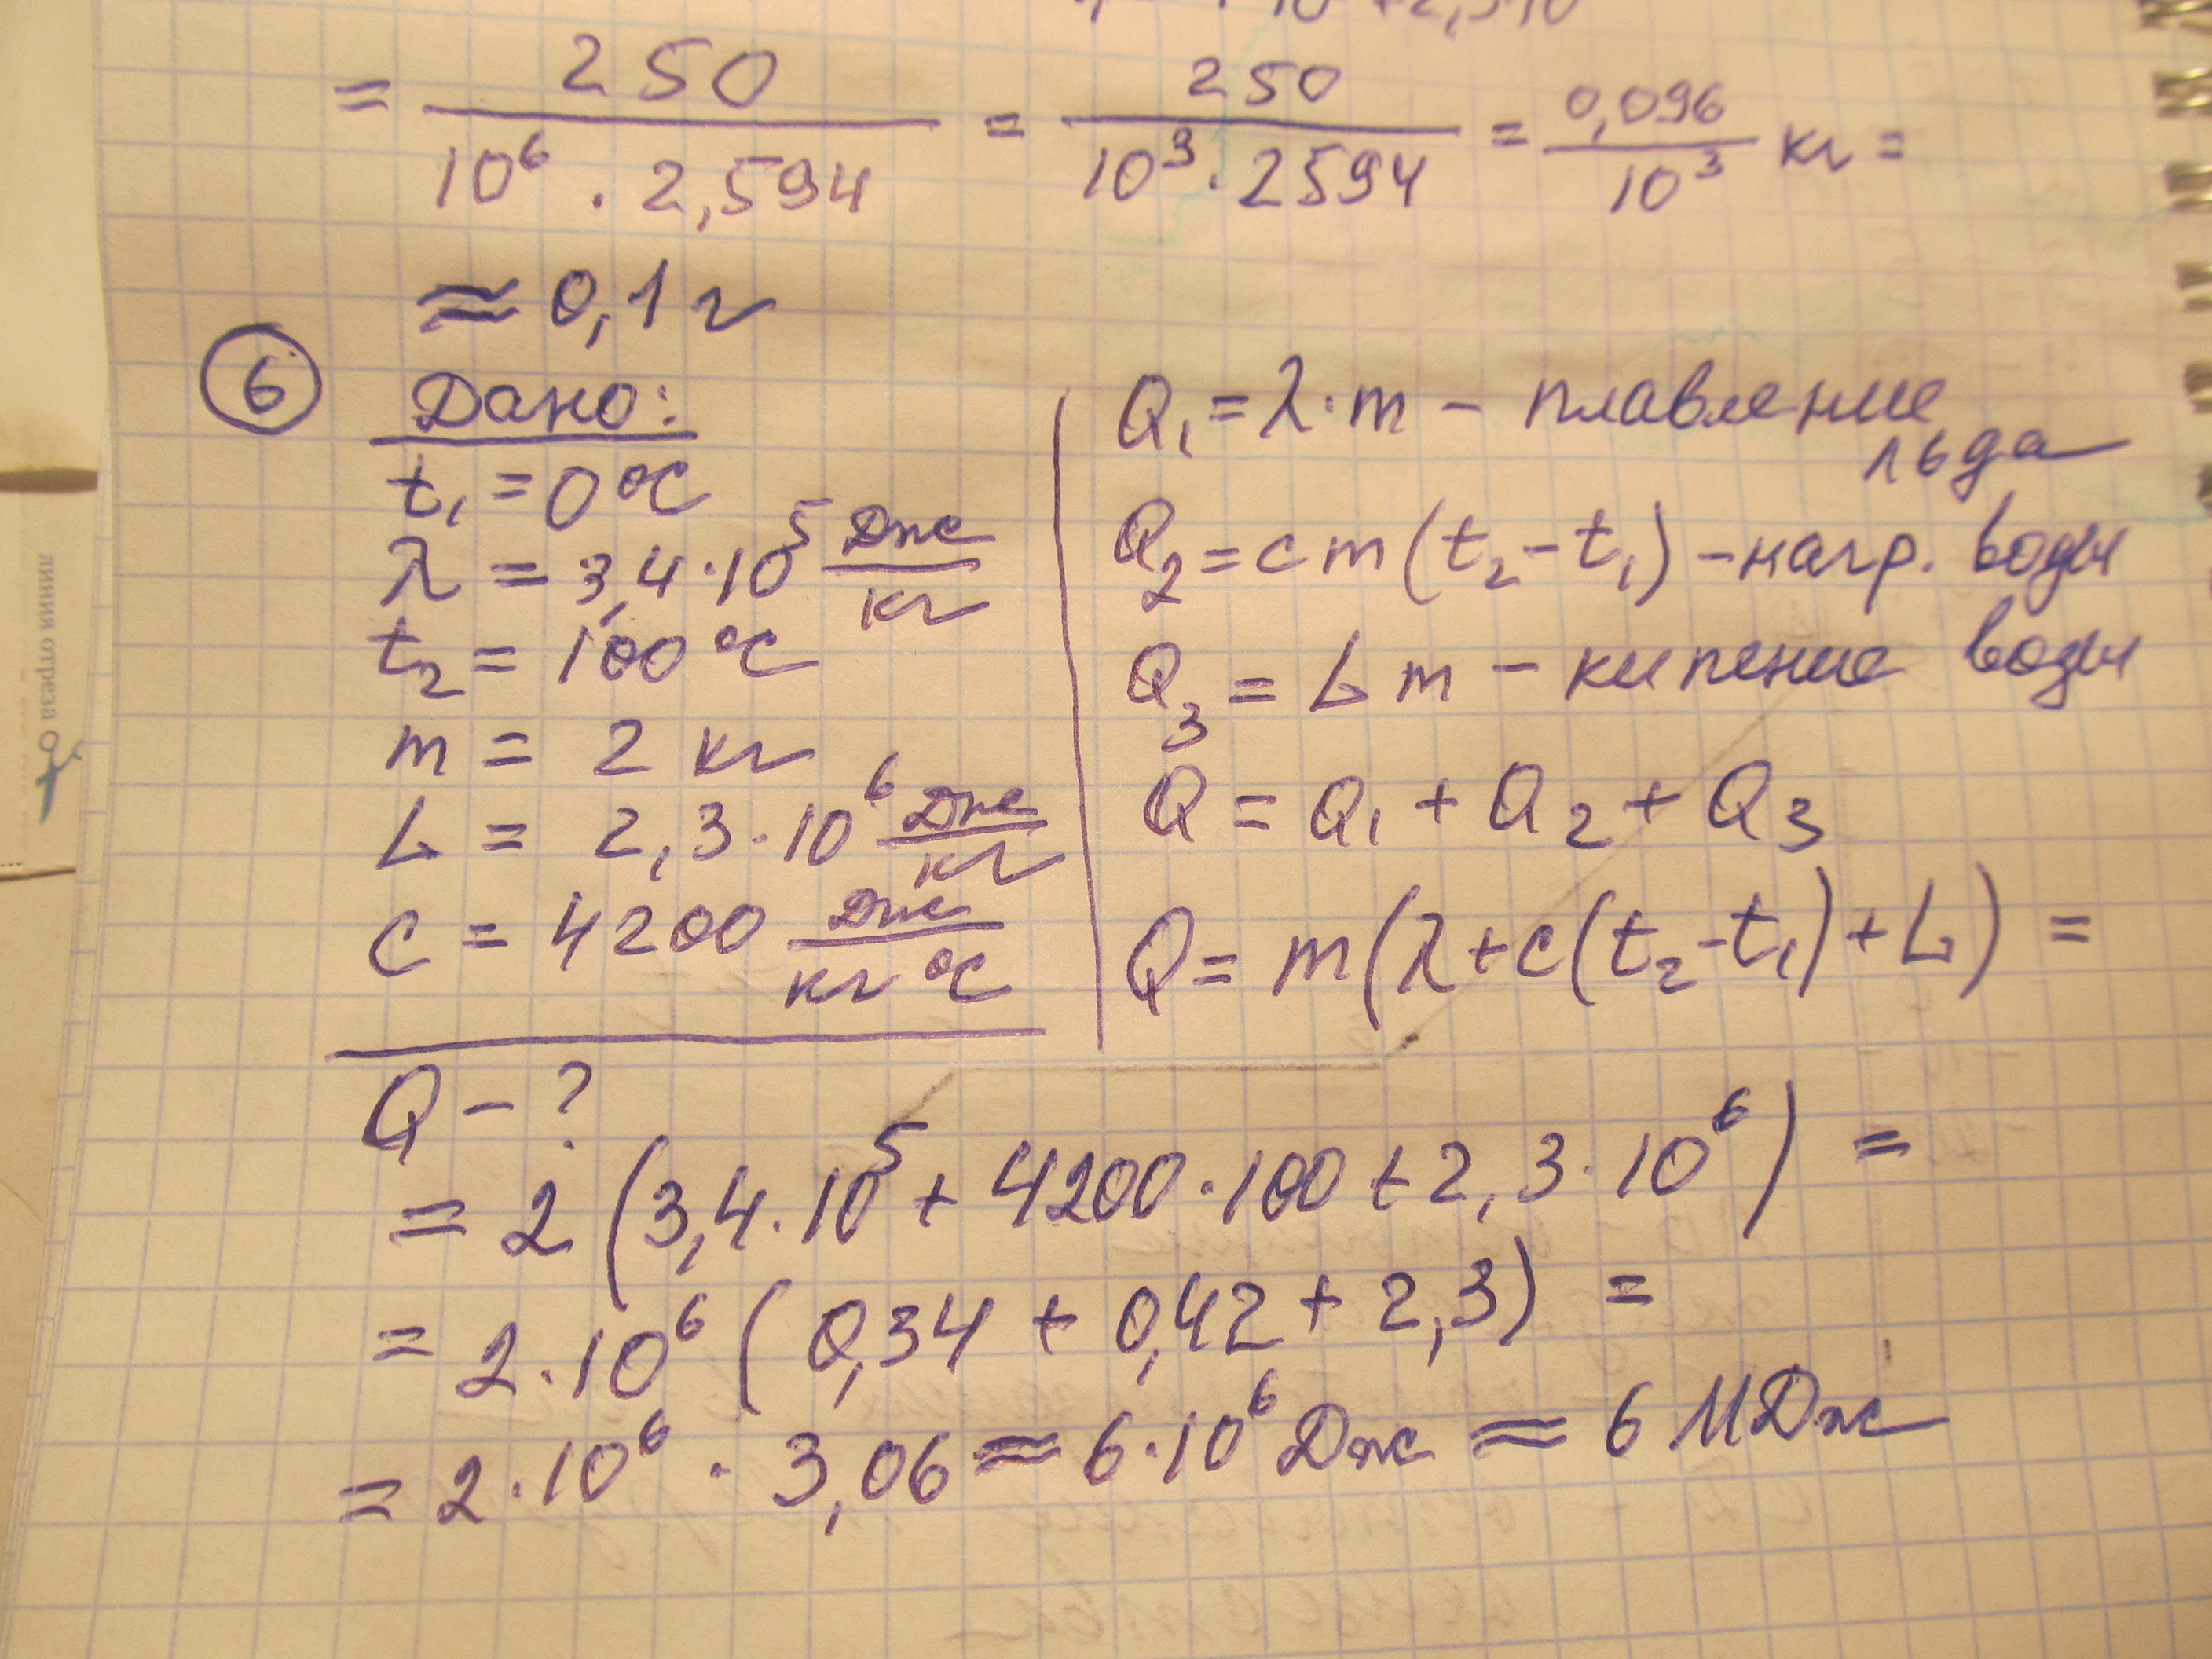 = 250 / 10⁶ · 2,594 = 250 / 10³ · 2594 = 0,096 / 10³ кг =
≈ 0,1 г
6 Дано:
t₁ = 0 °C
λ = 3,4 · 10⁵ Дж/кг
t₂ = 100 °C
m = 2 кг
L = 2,3 · 10⁶ Дж/кг
c = 4200 Дж/кг °C
Q - ?
Q₁ = λ · m - плавление
льда
Q₂ = c m (t₂ - t₁) - нагр. воды
Q₃ = L m - кипение воды
Q = Q₁ + Q₂ + Q₃
Q = m (λ + c (t₂ - t₁) + L) =
= 2 (3,4 · 10⁵ + 4200 · 100 + 2,3 · 10⁶) =
= 2 · 10⁶ (0,34 + 0,42 + 2,3) =
= 2 · 10⁶ · 3,06 ≈ 6 · 10⁶ Дж ≈ 6 МДж
линия отреза